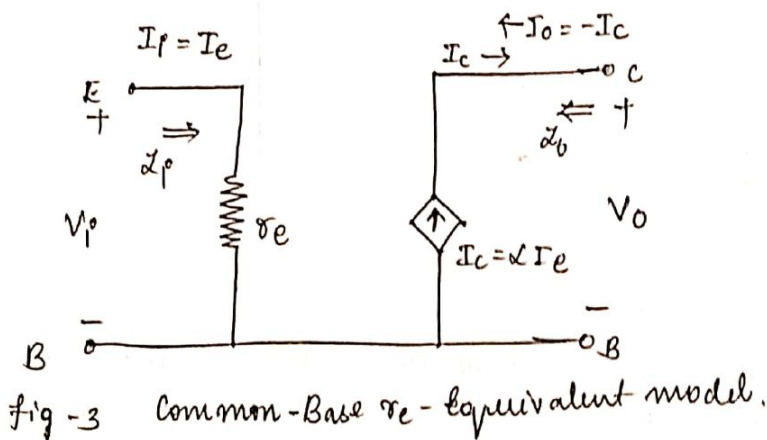 Ii = Ie
← Io = -Ic
Ic →
E
C
+
⇒
⇐ +
Zi
Zo
Vi
re
↑
Vo
Ic = αIe
-
-
B
B
fig -3 Common-Base re - Equivalent model.